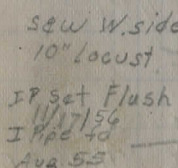 S & W W. side
10" Locust
IP Set Flush
11/17/56
I Pipe fd
Aug 53